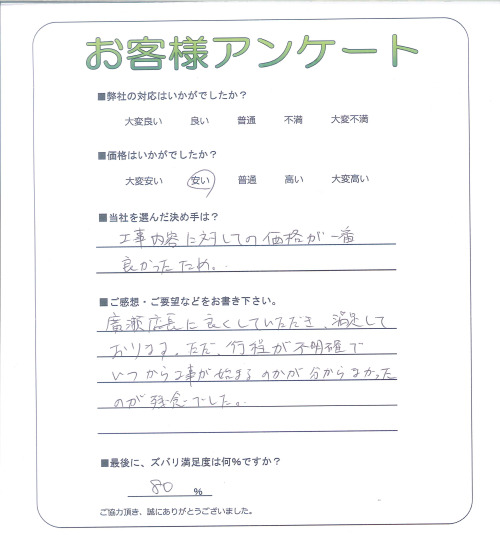 お客様アンケート
■弊社の対応はいかがでしたか？
大変良い 良い 普通 不満 大変不満
■価格はいかがでしたか？
大変安い 安い 普通 高い 大変高い
■当社を選んだ決め手は？
工事内容に対しての価格が一番
良かったため。
■ご感想・ご要望などをお書き下さい。
廣瀬店長に良くしていただき、満足して
おります。ただ、行程が不明確で
いつから工事が始まるのかが分からなかった
のが残念でした。
■最後に、ズバリ満足度は何%ですか？
80 %
ご協力頂き、誠にありがとうございました。